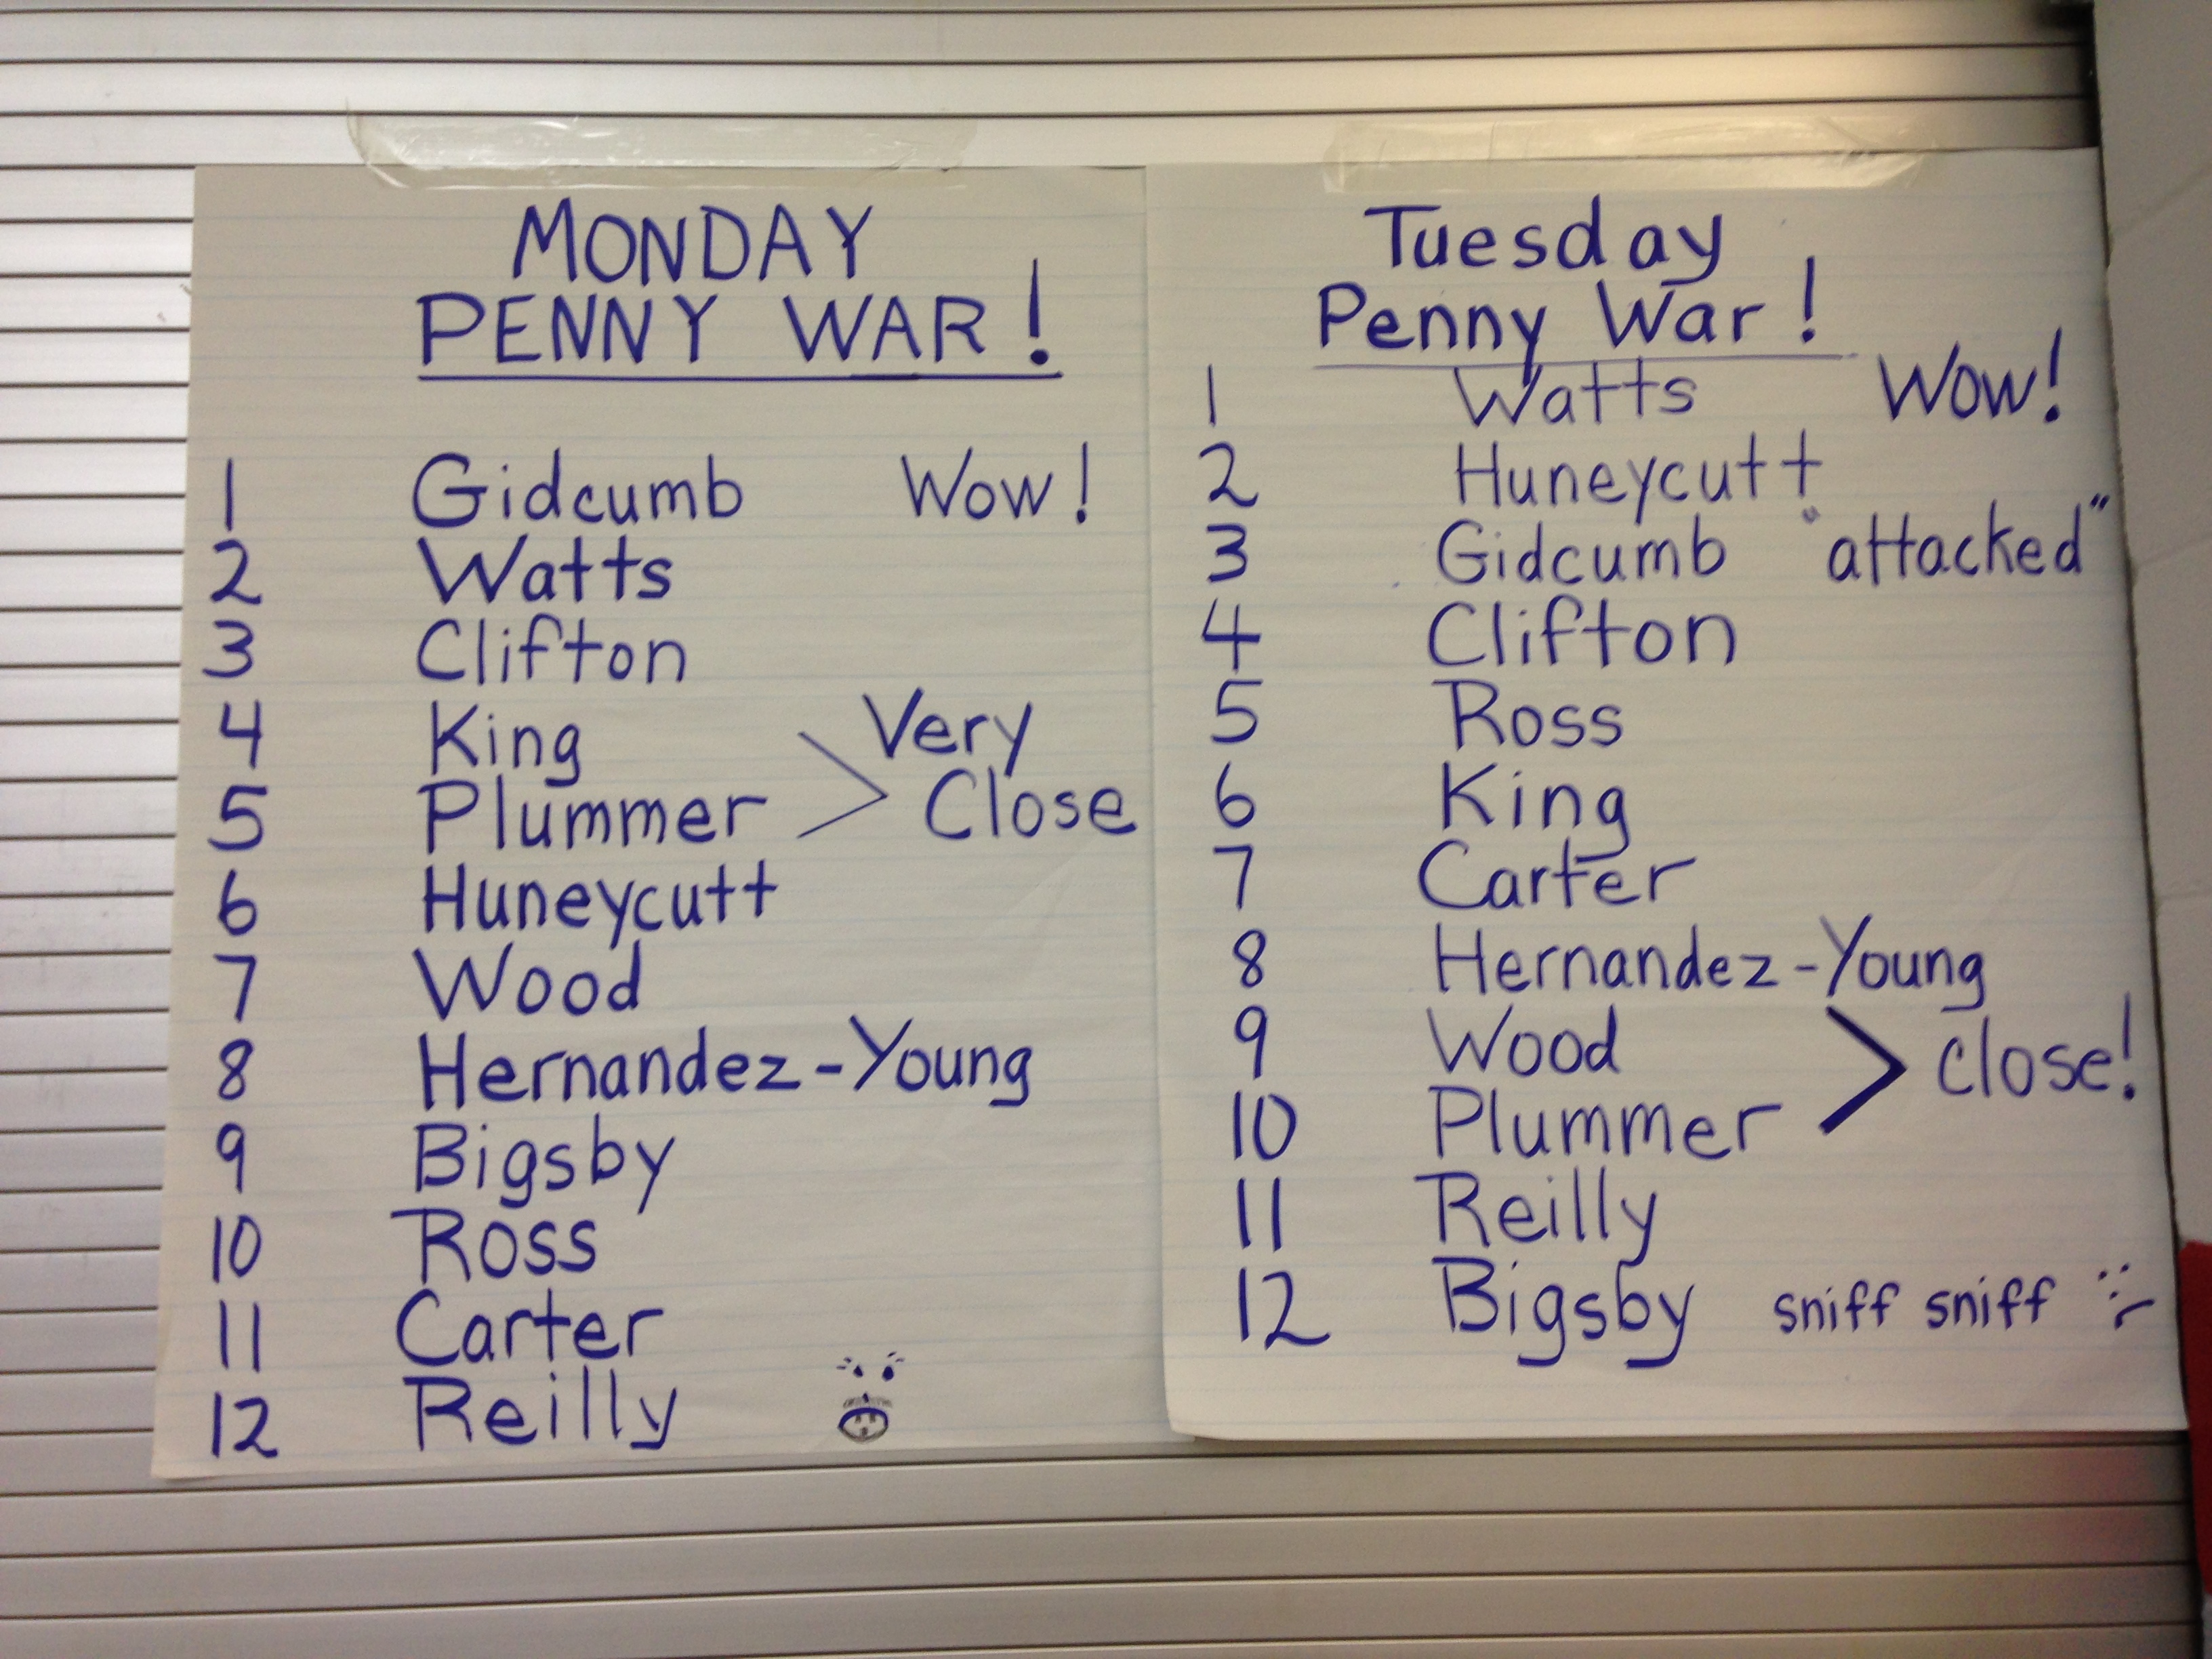 MONDAY
PENNY WAR!
1 Gidcumb Wow!
2 Watts
3 Clifton
4 King > Very
5 Plummer Close
6 Huneycutt
7 Wood
8 Hernandez-Young
9 Bigsby
10 Ross
11 Carter
12 Reilly
Tuesday
Penny War!
1 Watts Wow!
2 Huneycutt
3 Gidcumb "attacked"
4 Clifton
5 Ross
6 King
7 Carter
8 Hernandez-Young
9 Wood > close!
10 Plummer
11 Reilly
12 Bigsby sniff sniff